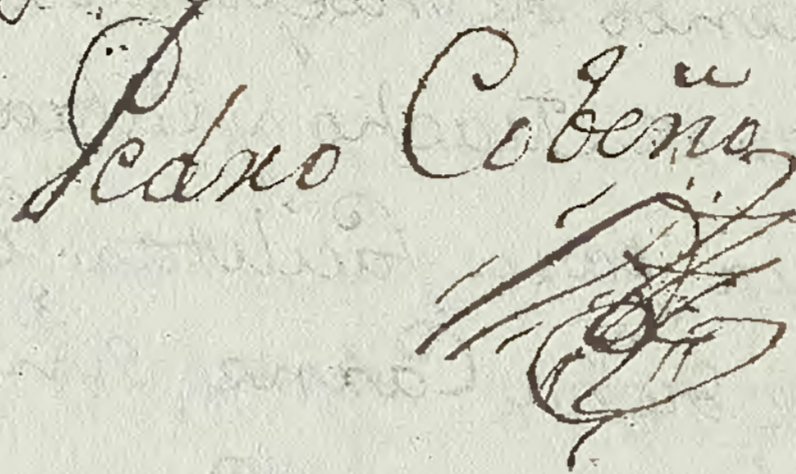 Pedro Cobeño